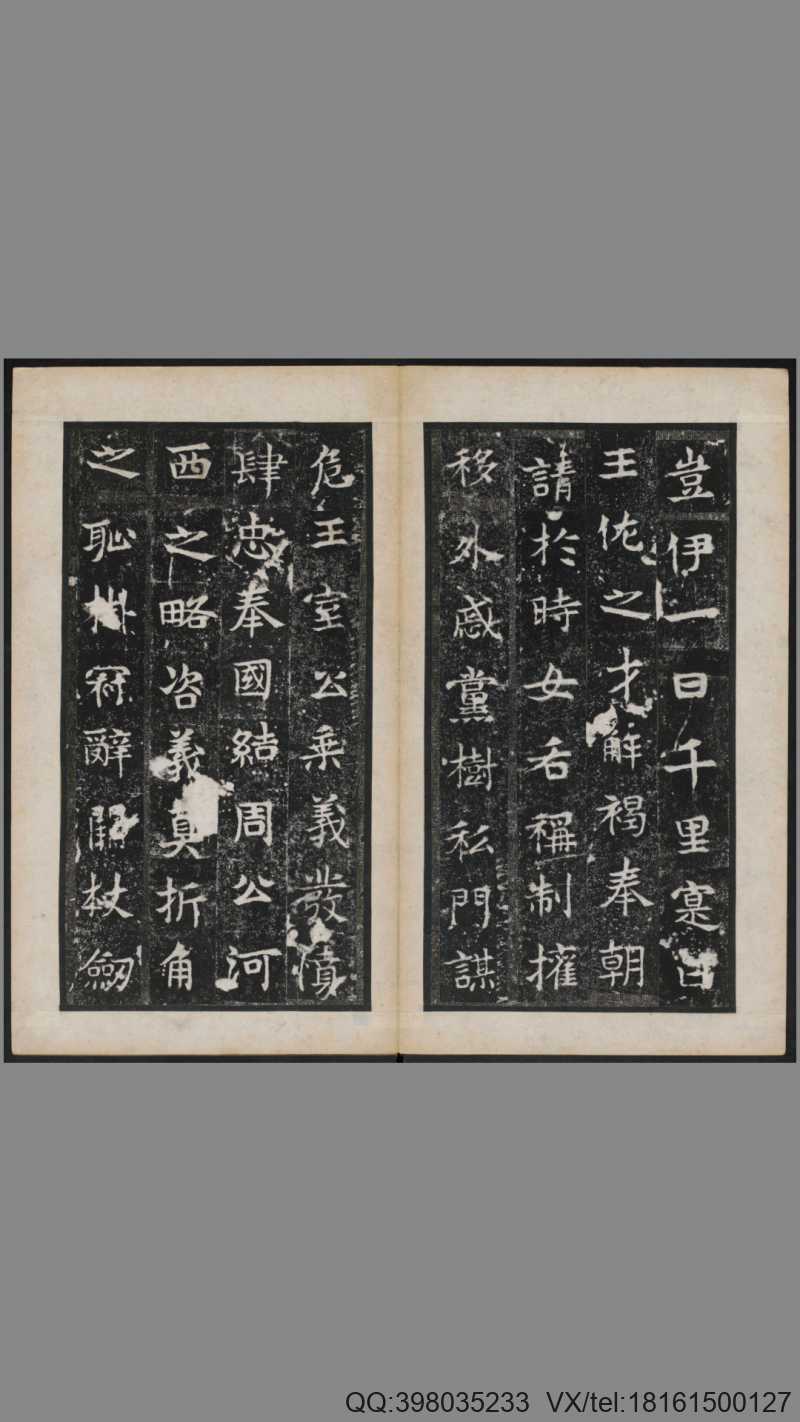 豈伊一日千里寔曰
王佐之才解褐奉朝
請於時女后稱制擁
移外戚黨樹私門謀
危王室公乘義發憤
肆忠奉國結周公河
西之略咨義真折角
之恥掛冠辭闕杖劒
QQ:398035233 VX/tel:18161500127